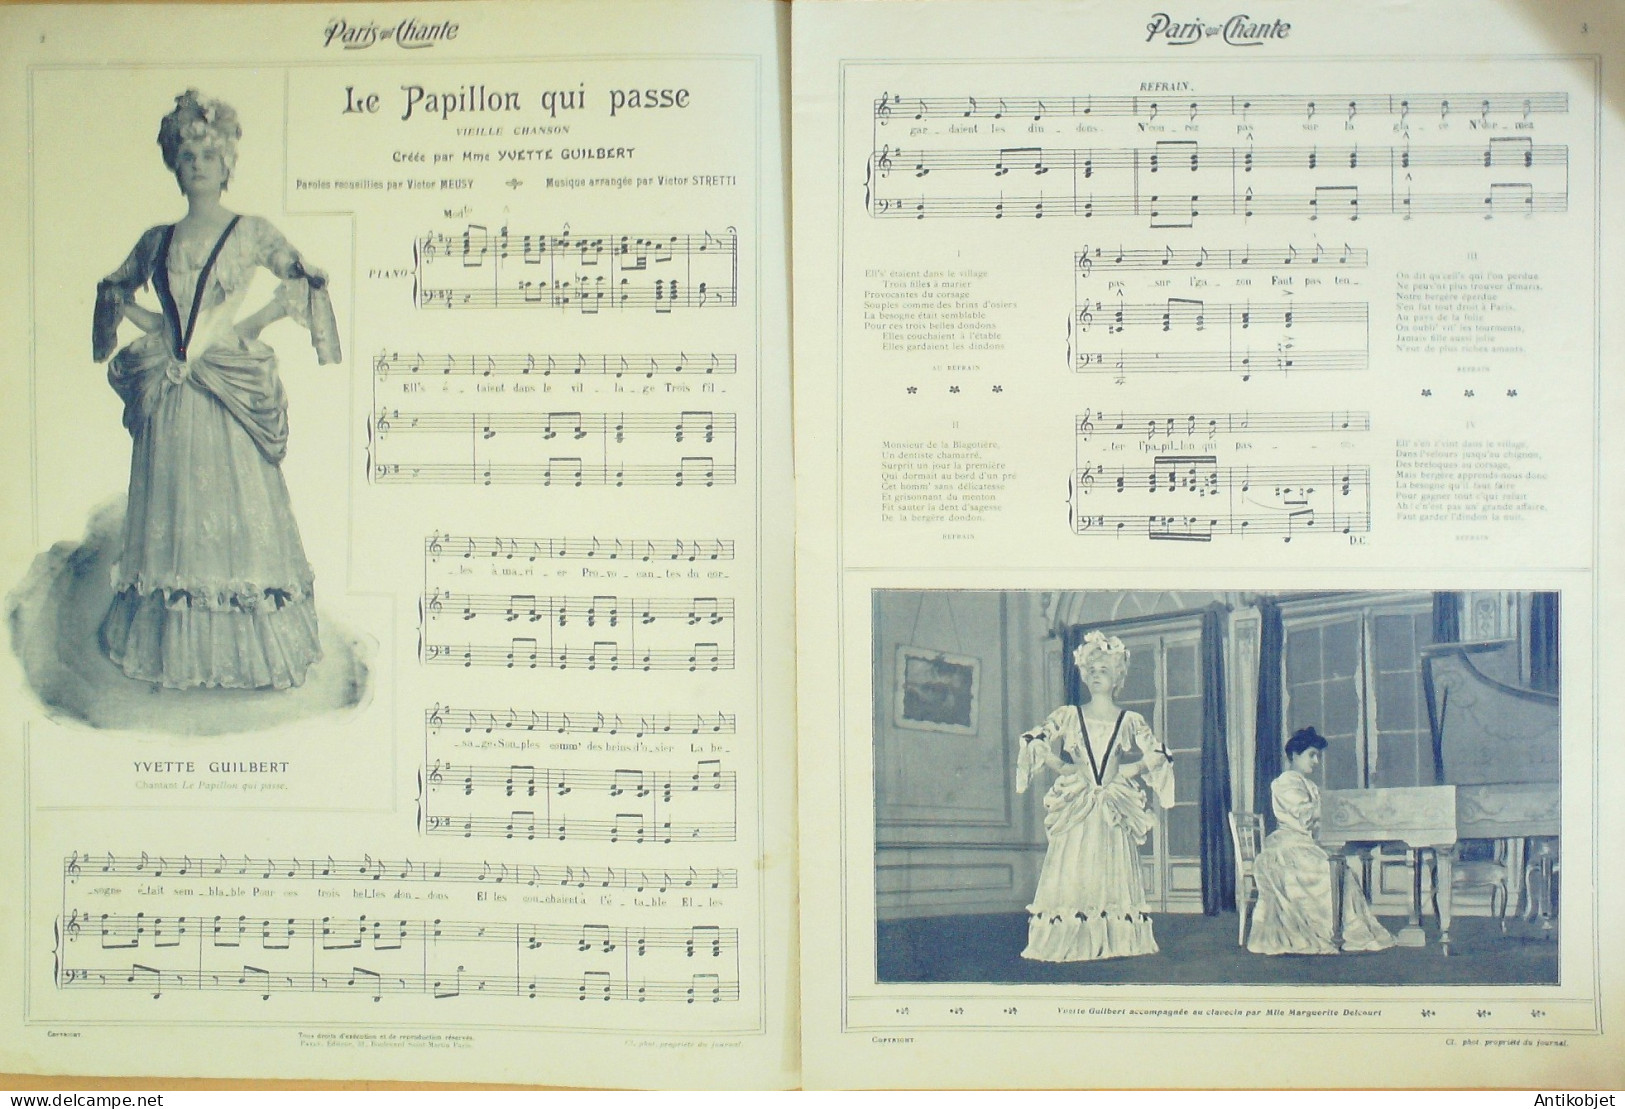 2
Paris qui Chante
Le Papillon qui passe
VIEILLE CHANSON
Créée par Mme YVETTE GUILBERT
Paroles recueillies par Victor MEUSY
Musique arrangée par Victor STRETTI
PIANO
Ell's é_taient dans le vil_la_ge Trois fil_
_les à ma_ri_er Pro_vo_can_tes du cor_
_sa_ge Sou_ples comm' des brins d'o_sier La be_
_sogne é_tait sem_bla_ble Pour ces trois bel_les don_dons El les cou_chaient à l'é_ta_ble El_les
YVETTE GUILBERT
Chantant Le Papillon qui passe.
COPYRIGHT
Tous droits d'exécution et de reproduction réservés.
Cl. phot. propriété du journal.
Paris qui Chante
3
REFRAIN.
gar_daient les din_dons. N'cou_rez pas sur la gla_ce N'dor_mez
pas _ sur l'ga_zon Faut pas ten_
_ter l'pa_pil_lon qui pas_ _ se.
D.C.
I
Ell's' étaient dans le village
Trois filles à marier
Provocantes du corsage
Souples comme des brins d'osiers
La besogne était semblable
Pour ces trois belles dondons
Elles couchaient à l'étable
Elles gardaient les dindons
AU REFRAIN
II
Monsieur de la Blagotière,
Un dentiste chamarré,
Surprit un jour la première
Qui dormait au bord d'un pré
Cet homm' sans délicatesse
Et grisonnant du menton
Fit sauter la dent d'sagesse
De la bergère dondon.
REFRAIN
III
On dit qu'cell's qui l'on perdue
Ne peuv'nt plus trouver d'maris,
Notre bergère éperdue
S'en fut tout droit à Paris,
Au pays de la folie
On oubli' vit' les tourments,
Jamais fille aussi jolie
N'eut de plus riches amants.
REFRAIN
IV
Ell' s'en r'vint dans le village,
Dans l'velours jusqu'au chignon,
Des breloques au corsage,
Mais bergère apprends-nous donc
La besogne qu'il faut faire
Pour gagner tout c'qui reluit
Ah! c'n'est pas un' grande affaire,
Faut garder l'dindon la nuit.
REFRAIN
Yvette Guilbert accompagnée au clavecin par Mlle Marguerite Delcourt
COPYRIGHT
Cl. phot. propriété du journal.
www.delcampe.net
Antikobjet